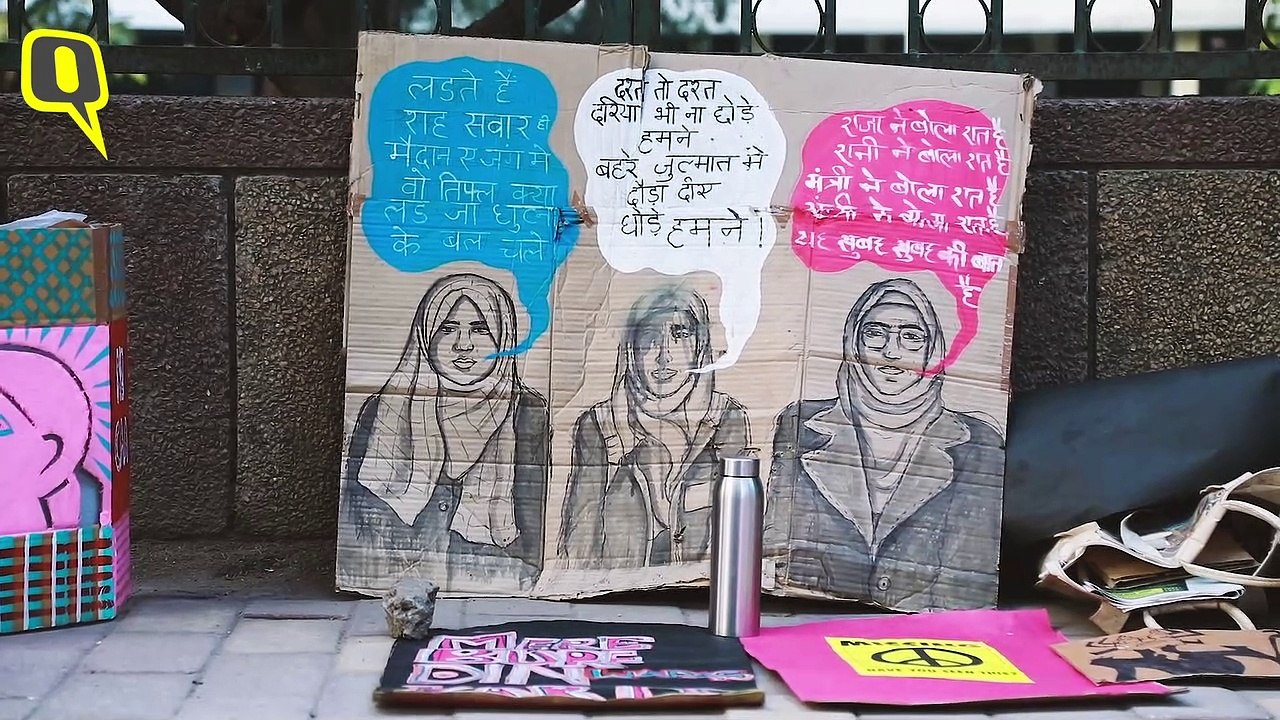 Q
लडते हैं
राह सवार ही
मैदान ए जंग मे
वो तिफ्ल क्या
लडे जो
के बल चले
दश्त तो दश्त
दरिया भी ना छोड़े
हमने
बहरे ज़ुल्मात मे
दौड़ा दीए
घोड़े हमने !
राजा ने बोला रात है
रानी ने बोला रात है
मंत्री ने बोला रात है
संत्री ने बोला रात है
यह सुबह सुबह की बात
है
MERE
BURE
DIN
MISSING
HAVE YOU SEEN THIS?